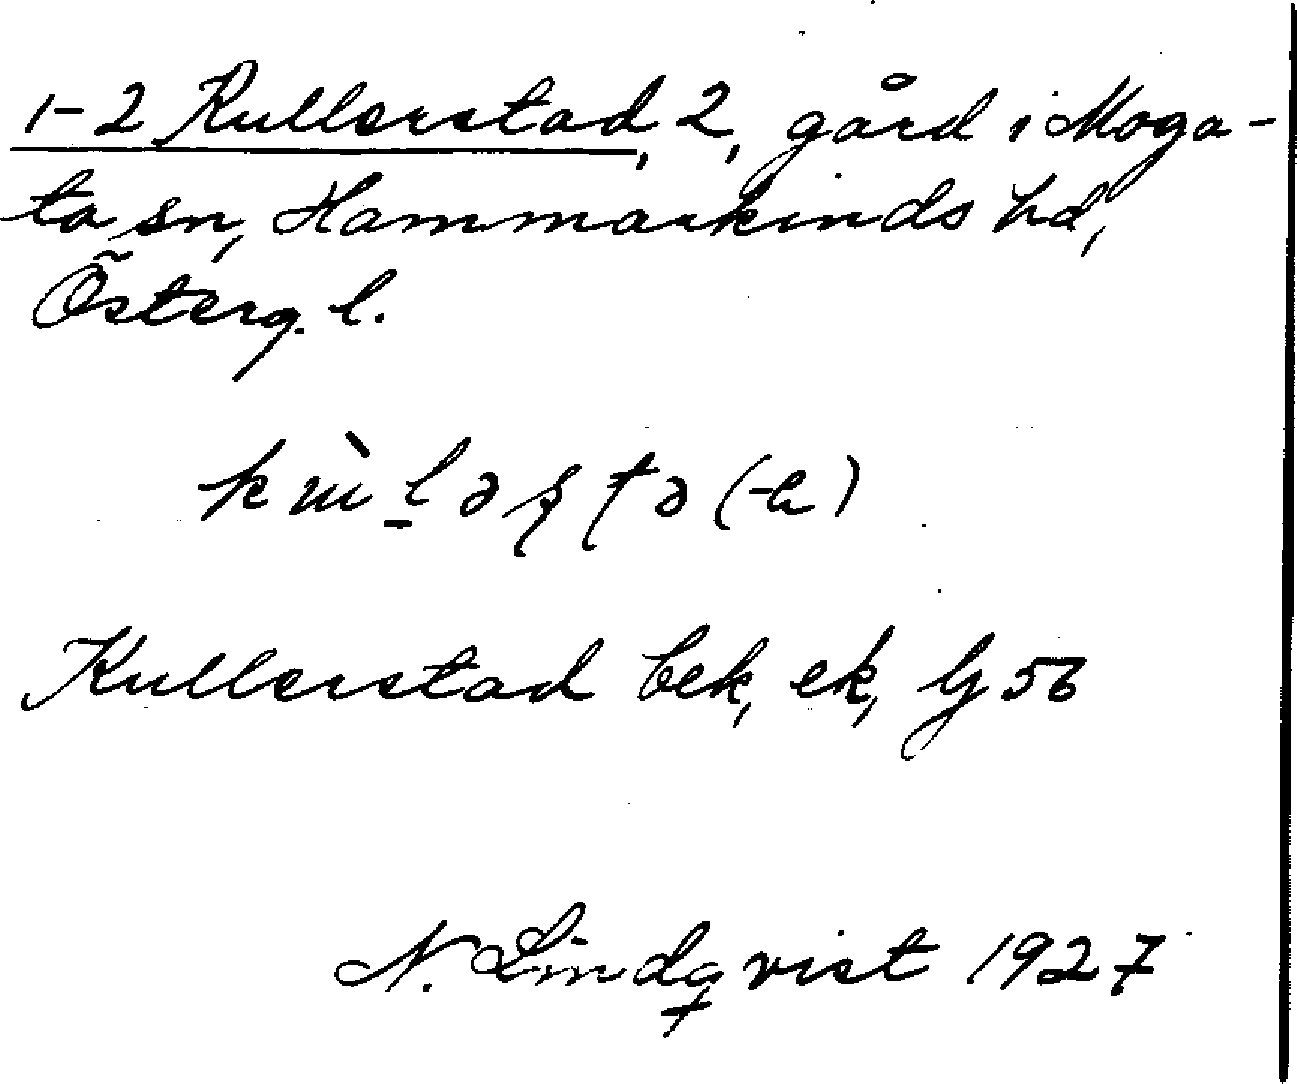 1-2 Kullerstad, 2, gård i Moga-
ta sn, Hammarkinds hd,
Österg. l.
Kullerstad bek, ek, Gj 56
N. Lindqvist 1927